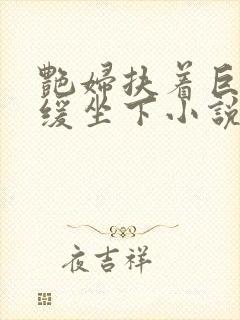 艷婦扶着巨
缓坐下小說
夜吉祥